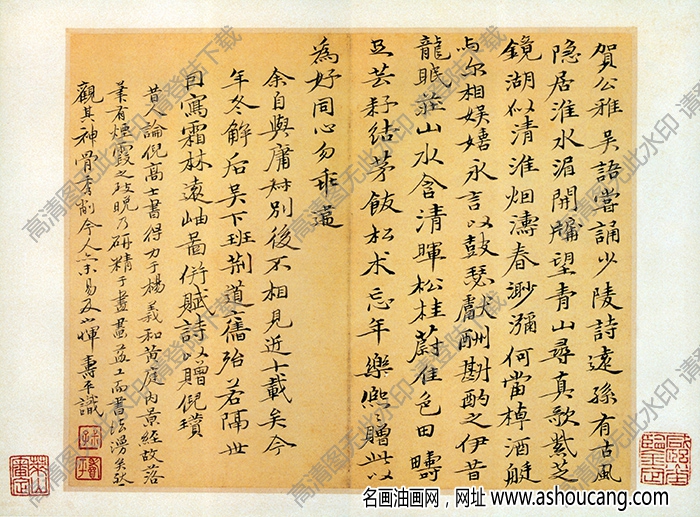 賀公雅吳語嘗誦少陵詩遠孫有古風
隐居淮水湄開牖望青山尋真歌紫芝
鏡湖似清淮烟濤春渺瀰何當棹酒艇
与尔相娱嬉永言以鼓瑟獻酬斟酌之伊昔
龍眠莊山水含清暉松桂蔚佳色田疇
且芸耔結茅飯松术忘年樂熙熙贈此以
為好同心勿乖違
余自與庸叔別後不相見近十載矣今
年冬解后吴下班荆道舊殆若隔世
因寫霜林遠岫啚併賦詩以贈倪瓚
昔人論倪高士書得力于楊義和黄庭内景經故落
筆有煙霞之致晚乃研精于畫畫益工而書法漫矣然
觀其神骨秀削今人未易及小惲壽平識
高清图无此水印 请登陆下载
名画油画网，网址 www.ashoucang.com